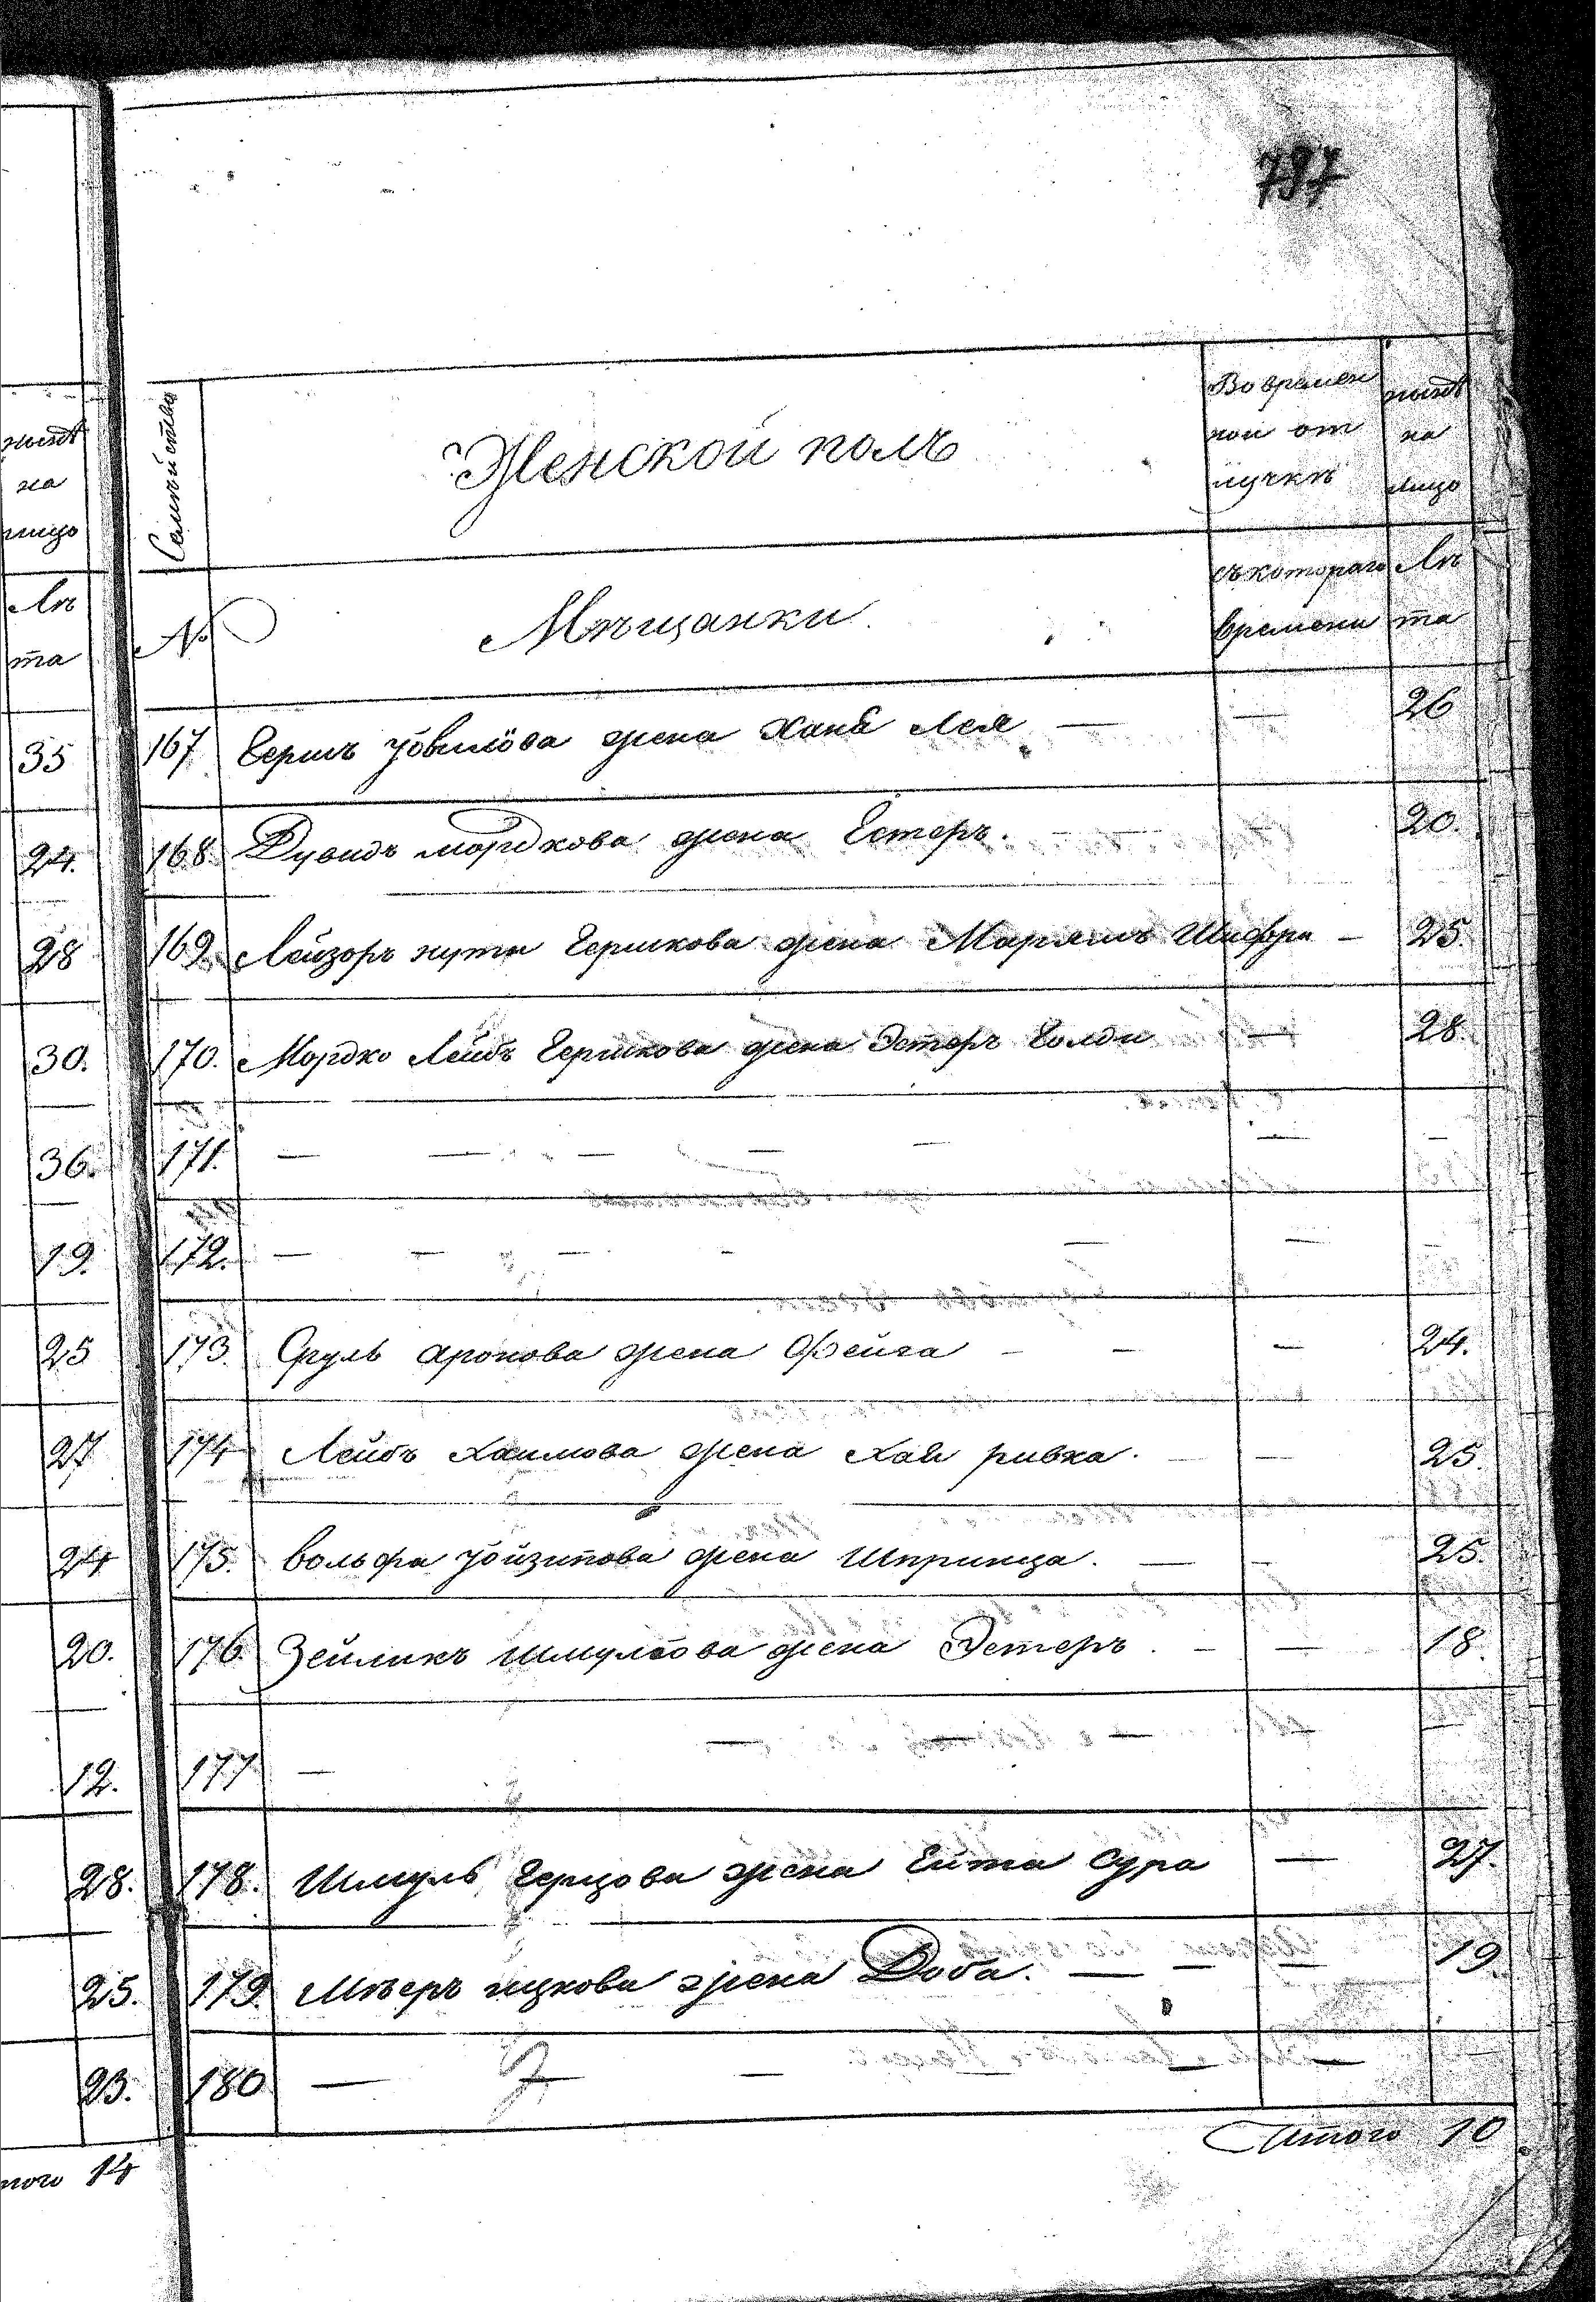 797
нынѣ
на
лицо
Лѣ
та
35
24.
28
30.
36.
19.
25
27
24
20.
12.
28.
25.
23.
того 14
Семейства
Женской полъ
Во времен
ной от
лучкѣ
нынѣ
на
лицо
№
Мѣщанки
съ котораго
времени
Лѣ
та
167 Гершъ Іовилова жена Хана Лея — — 26
168. Дувидъ мордкова жена Естеръ. 20.
169. Лейзоръ нута Гершкова жена Марямъ Шифра — 25.
170. Мордко Лейбъ Гершкова жена Эстеръ Голда — 28.
171. — — — — — — —
172. — — — — — — —
173. Сруль аронова жена Фейга — — — 24.
174 Лейбъ Хаимова жена Хая ривка. — — 25.
175. Вольфа Іойзипова жена Шпринца. — — 25.
176. Зейликъ шмулёва жена Эстеръ. — — 18.
177 — — — — — —
178. Шмуль Герцова жена Ейта Сура — 27.
179. Мѣеръ ицкова жена Доба. — — — 19.
180 — — — — —
Итого 10